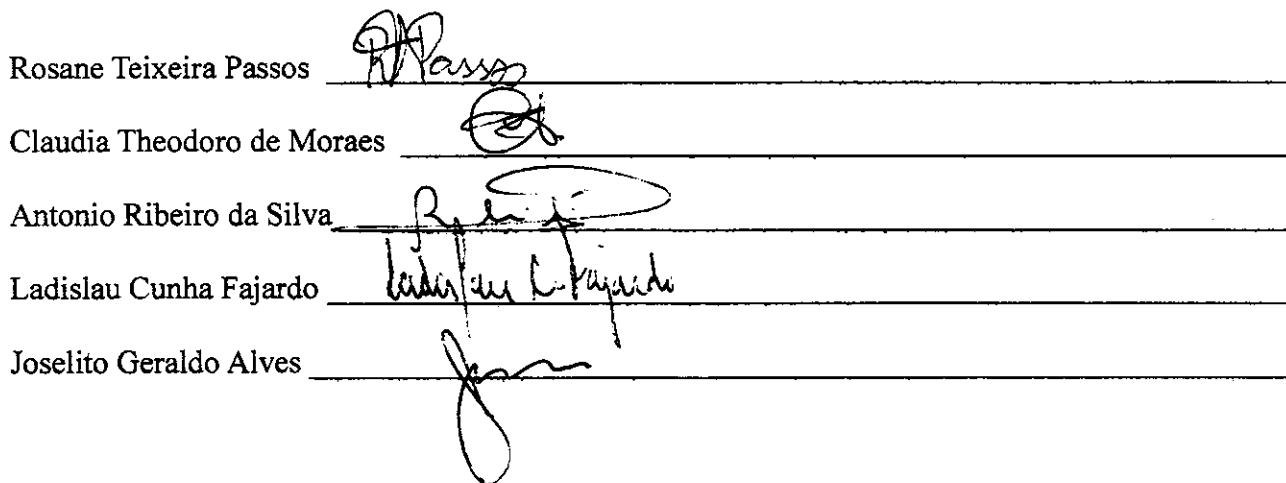 Rosane Teixeira Passos RTPassos
Claudia Theodoro de Moraes
Antonio Ribeiro da Silva
Ladislau Cunha Fajardo Ladislau C. Fajardo
Joselito Geraldo Alves